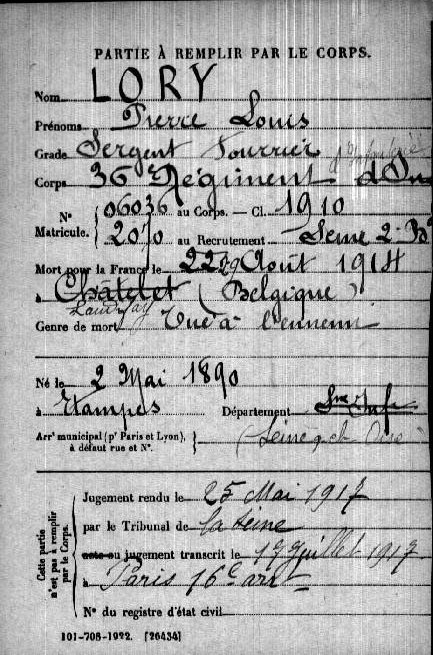 PARTIE À REMPLIR PAR LE CORPS.
Nom LORY
Prénoms Pierre Louis
Grade Sergent Fourrier
Corps 36 Régiment d'Inf
N° Matricule. { 06036 au Corps. — Cl. 1910
2070 au Recrutement Seine 2e B
Mort pour la France le 22 29 Août 1914
à Châtelet (Belgique)
Genre de mort Tué à l'ennemi
Né le 2 Mai 1890
à Etampes Département Sne Infe
Arrt municipal (pr Paris et Lyon), à défaut rue et N°. } (Seine et Oise)
Cette partie n'est pas à remplir par le Corps.
Jugement rendu le 25 Mai 1917
par le Tribunal de la Seine
acte ou jugement transcrit le 17 Juillet 1917
à Paris 16e arrt
N° du registre d'état civil
101-708-1922. [26434]